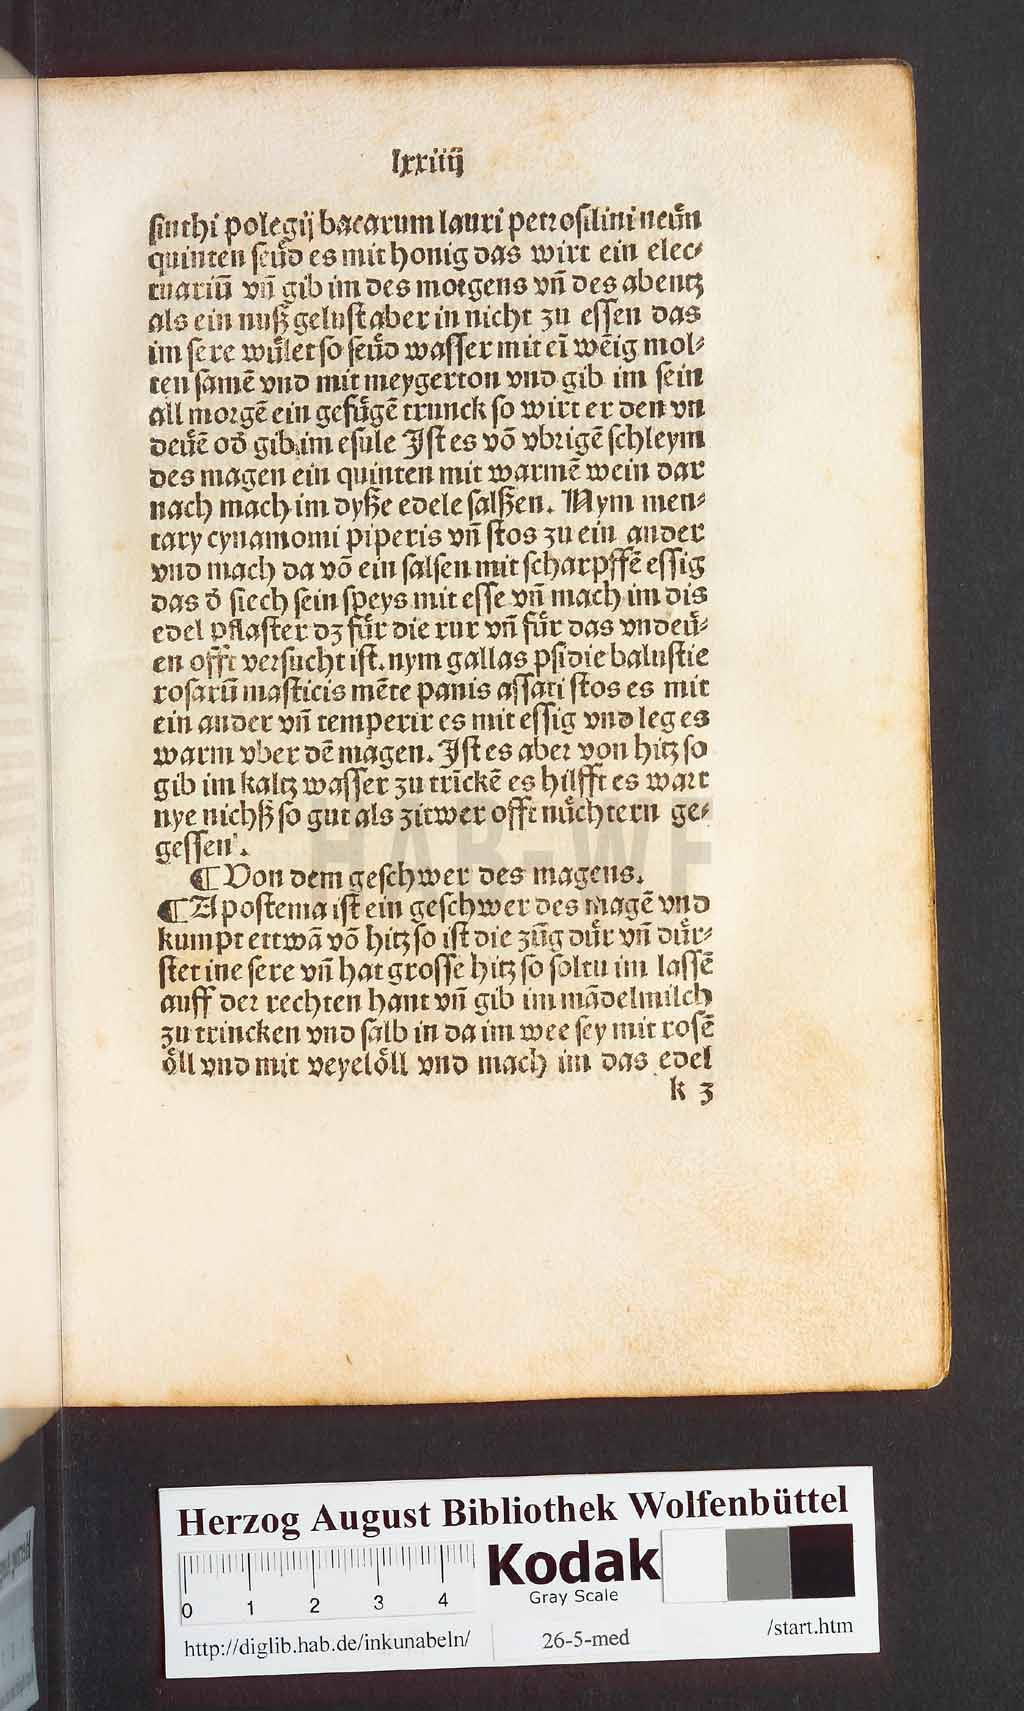 lxxiiij
ſinthi polegij bacarum lauri petroſilini neuͤn
quinten ſeuͤd es mit honig das wirt ein elec⸗
tuariū vn̄ gib im des morgens vn̄ des abentz
als ein nuß geluſt aber in nicht zu eſſen das
im ſere wuͤlet ſo ſeuͤd waſſer mit eī wēig mol⸗
ten ſamē vnd mit meygerton vnd gib im ſein
all morgē ein gefuͤgē trunck ſo wirt er den vn
deuͤē od̄ gib im eſule Jſt es vō vbrigē ſchleym
des magen ein quinten mit warmē wein dar
nach mach im dyße edele ſalßen. Nym men⸗
tary cynamomi piperis vn̄ ſtos zu ein ander
vnd mach da vō ein ſalſen mit ſcharpffē eſſig
das d̄ ſiech ſein ſpeys mit eſſe vn̄ mach im dis
edel pflaſter dz fuͤr die rur vn̄ fuͤr das vndeuͤ⸗
en offt verſucht iſt. nym gallas pſidie baluſtie
roſarū maſticis mēte panis aſſati ſtos es mit
ein ander vn̄ temperir es mit eſſig vnd leg es
warm vber dē magen. Jſt es aber von hitz ſo
gib im kaltz waſſer zu trīckē es hilfft es wart
nye nichß ſo gut als zitwer offt nuͤchtern ge⸗
geſſen.
¶ Von dem geſchwer des magens.
¶ Apoſtema iſt ein geſchwer des magē vnd
kumpt ettwā vō hitz ſo iſt die zūg duͤr vn̄ duͤr⸗
ſtet ine ſere vn̄ hat groſſe hitz ſo ſoltu im laſſē
auff der rechten hant vn̄ gib im mādelmilch
zu trincken vnd ſalb in da im wee ſey mit roſē
oͤll vnd mit veyeloͤll vnd mach im das edel
k 3
HAB-WF
Herzog August Bibliothek Wolfenbüttel
0 1 2 3 4
Kodak
Gray Scale
http://diglib.hab.de/inkunabeln/ 26-5-med /start.htm